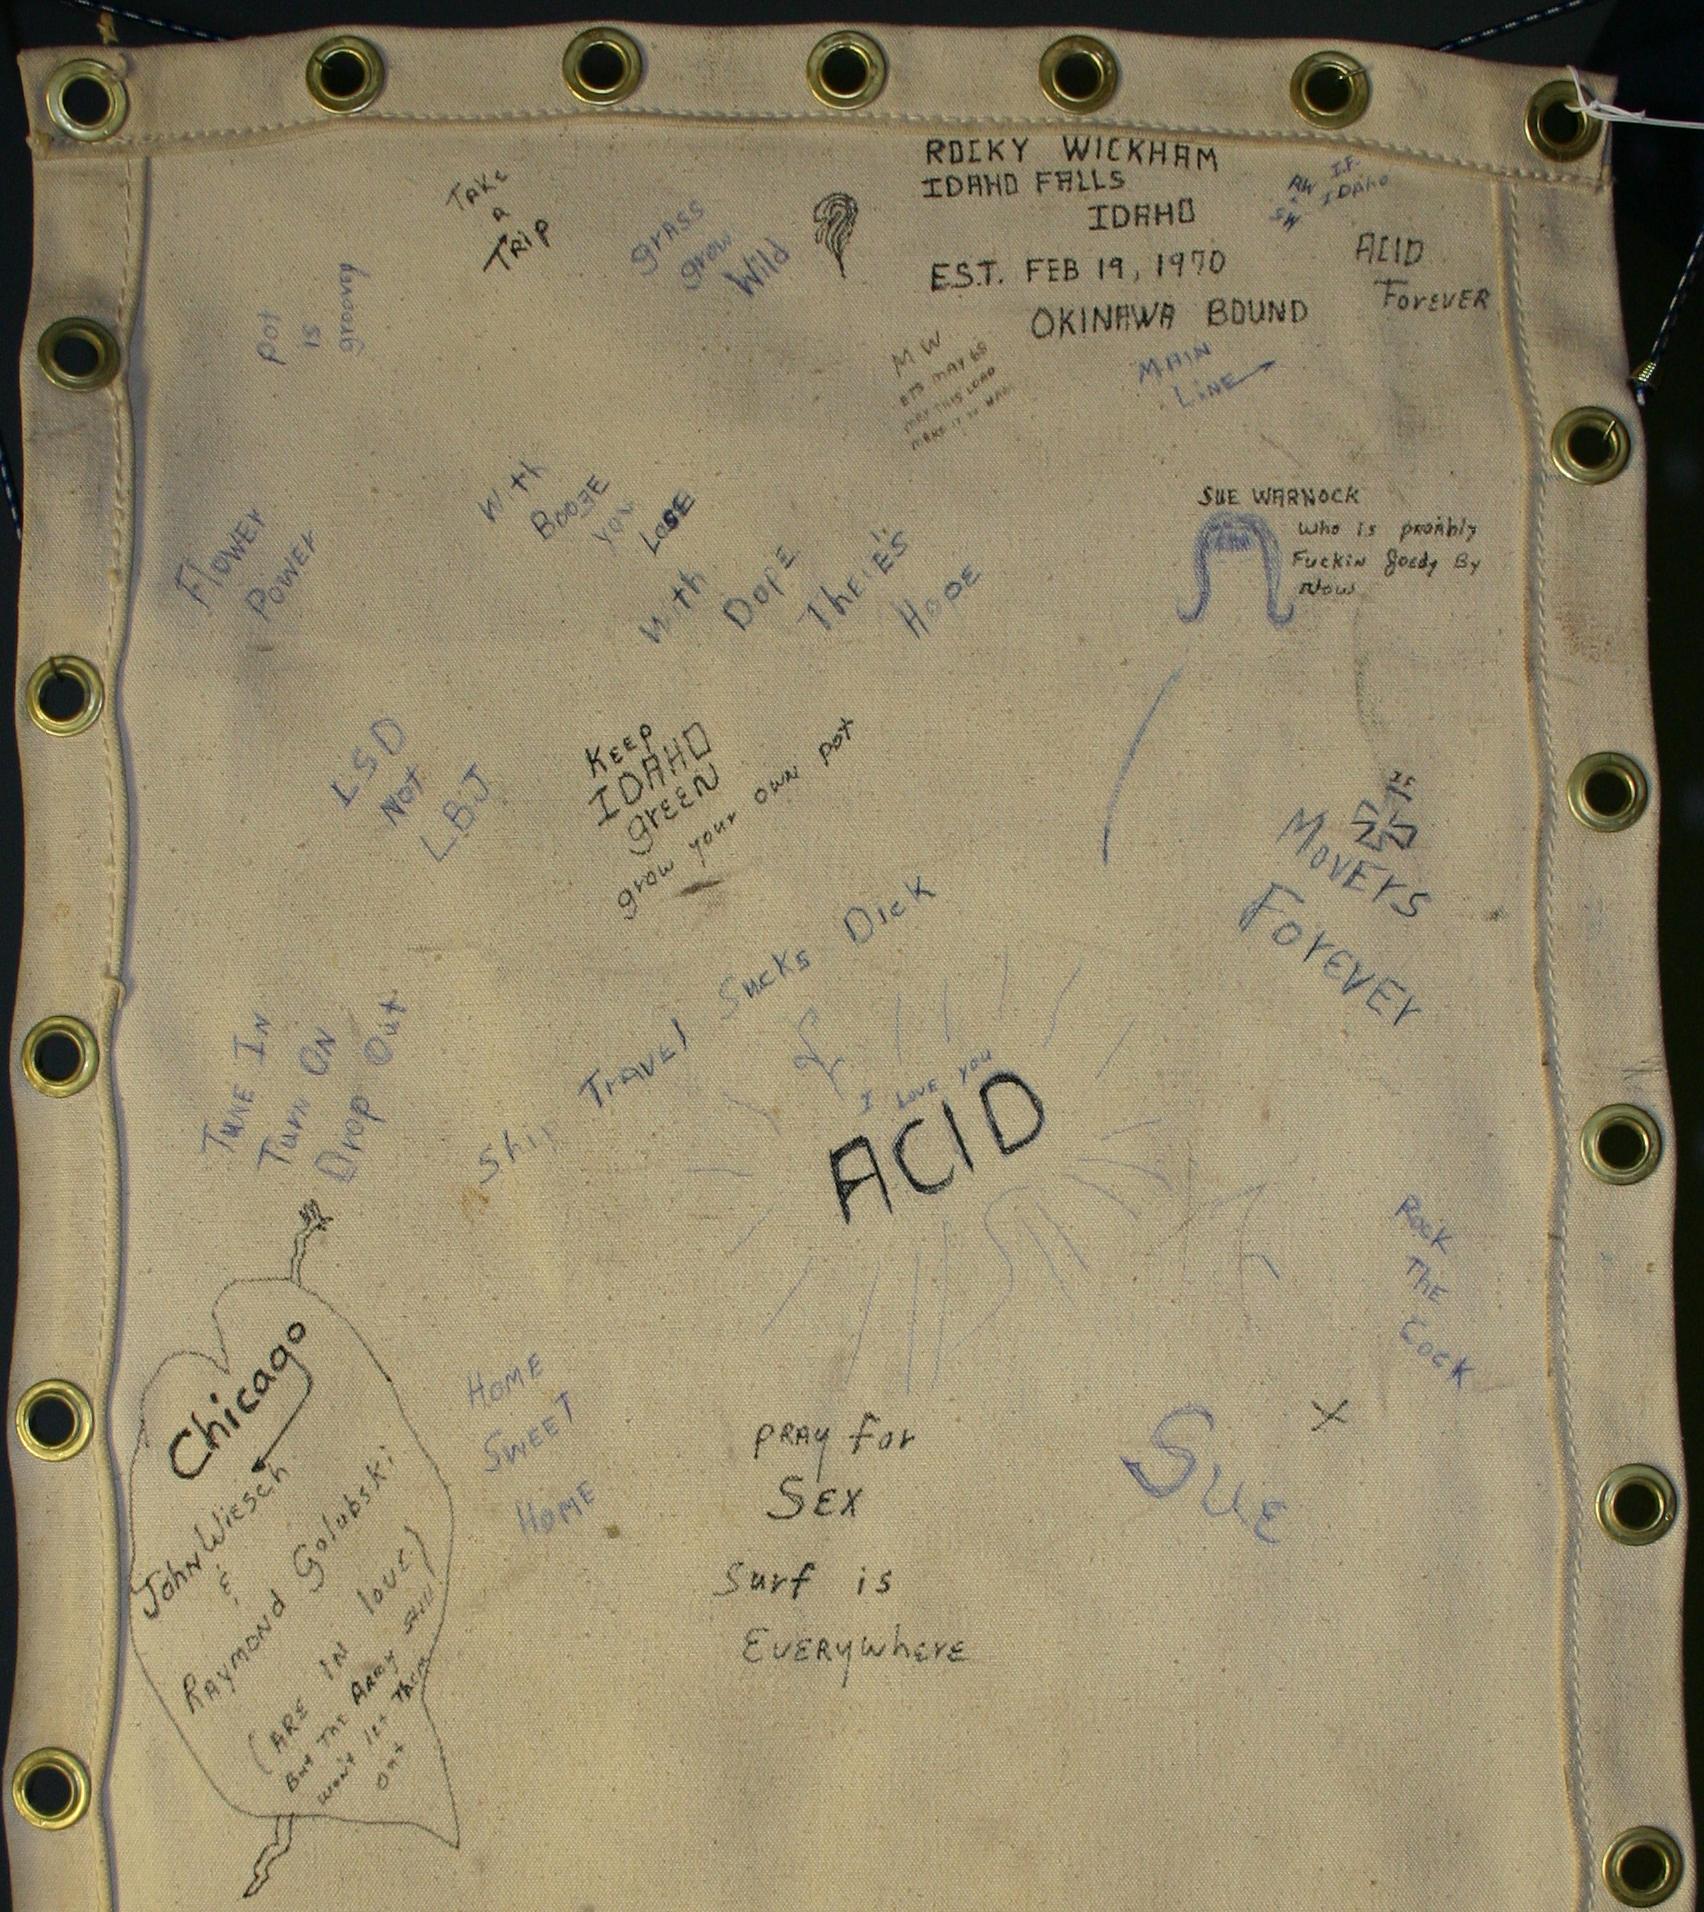 ROCKY WICKHAM
IDAHO FALLS
IDAHO
EST. FEB 19, 1970
OKINAWA BOUND
TAKE
a
TRIP
grass
grow
Wild
RW
SW
I.F.
IDAHO
ACID
ForEVER
pot
is
groovy
M W
ETS MAY 68
MAY THIS LOAD
MAKE IT
MAIN
LINE
With
BOOZE
you
LosE
With
DopE
TheiE'S
HopE
FlowEr
PowEr
SUE WARNOCK
Who is proribly
Fuckin goedy By
Now
LSD
Not
LBJ
KEEP
IDAHO
grEEN
grow your own pot
IF
MovErs
ForEVEr
Ship TravEl Sucks Dick
TUNE IN
Turn ON
Drop Out
I LOVE YOU
ACID
Rock
ThE
Cock
Chicago
John WiEsch
&
RAymoNd Golubski
(ARE IN lovE)
But ThE ARmy still
won't let ThEm
out
HOME
SWEET
HOME
PRAY for
SEX
Surf is
EvERywhErE
X
SUE